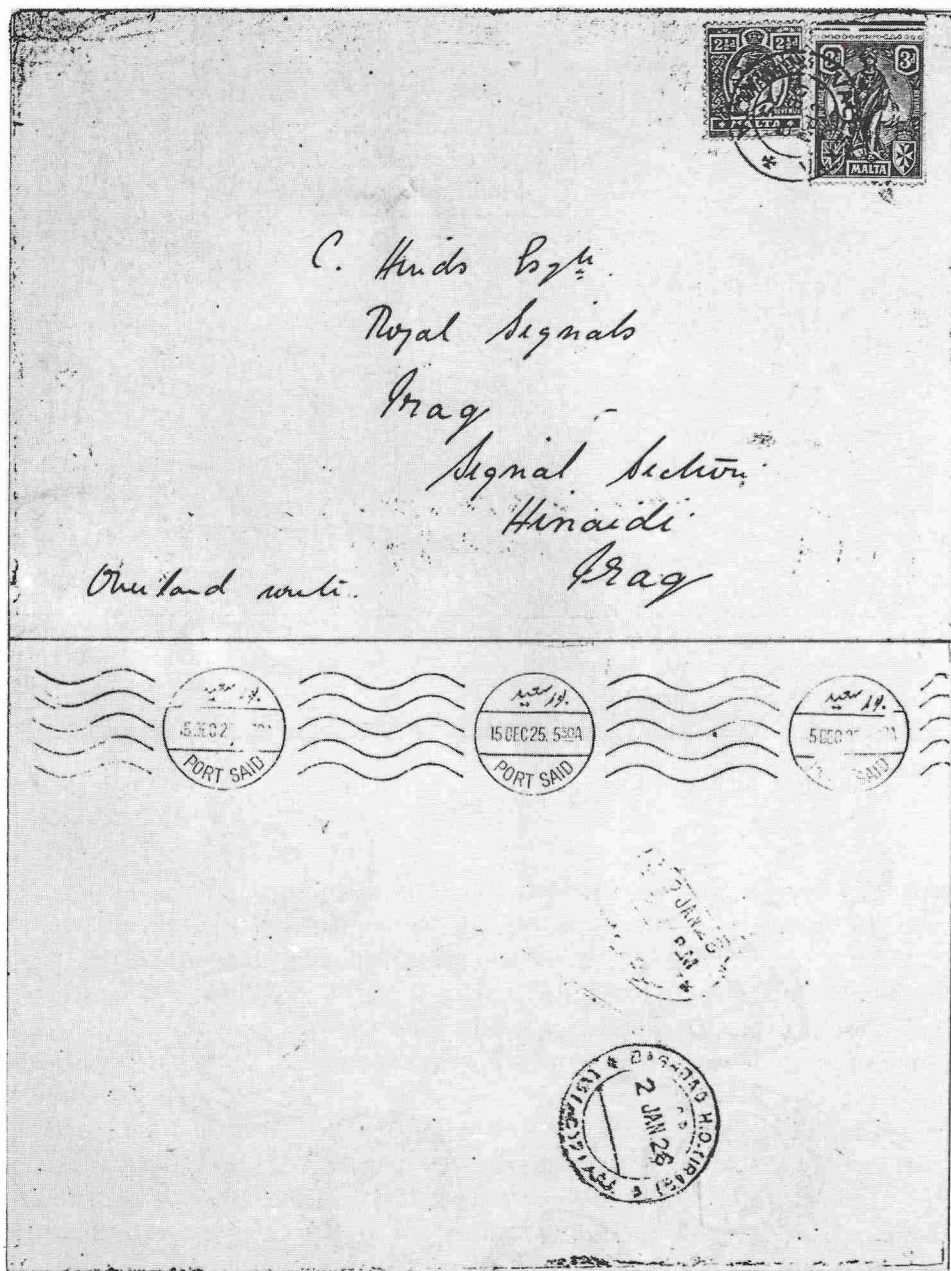 2½d 2½d
MALTA
3d
MALTA
C. Hinds Esqre
Royal Signals
Iraq
Signal Section
Hinaidi
Iraq
Overland route.
بور سعيد
15 DEC 25. 5 30A
PORT SAID
بور سعيد
PORT SAID
بور سعيد
SAID
2 JAN 26
PM
BAGHDAD H.O. (IRAQ)
2 JAN 26